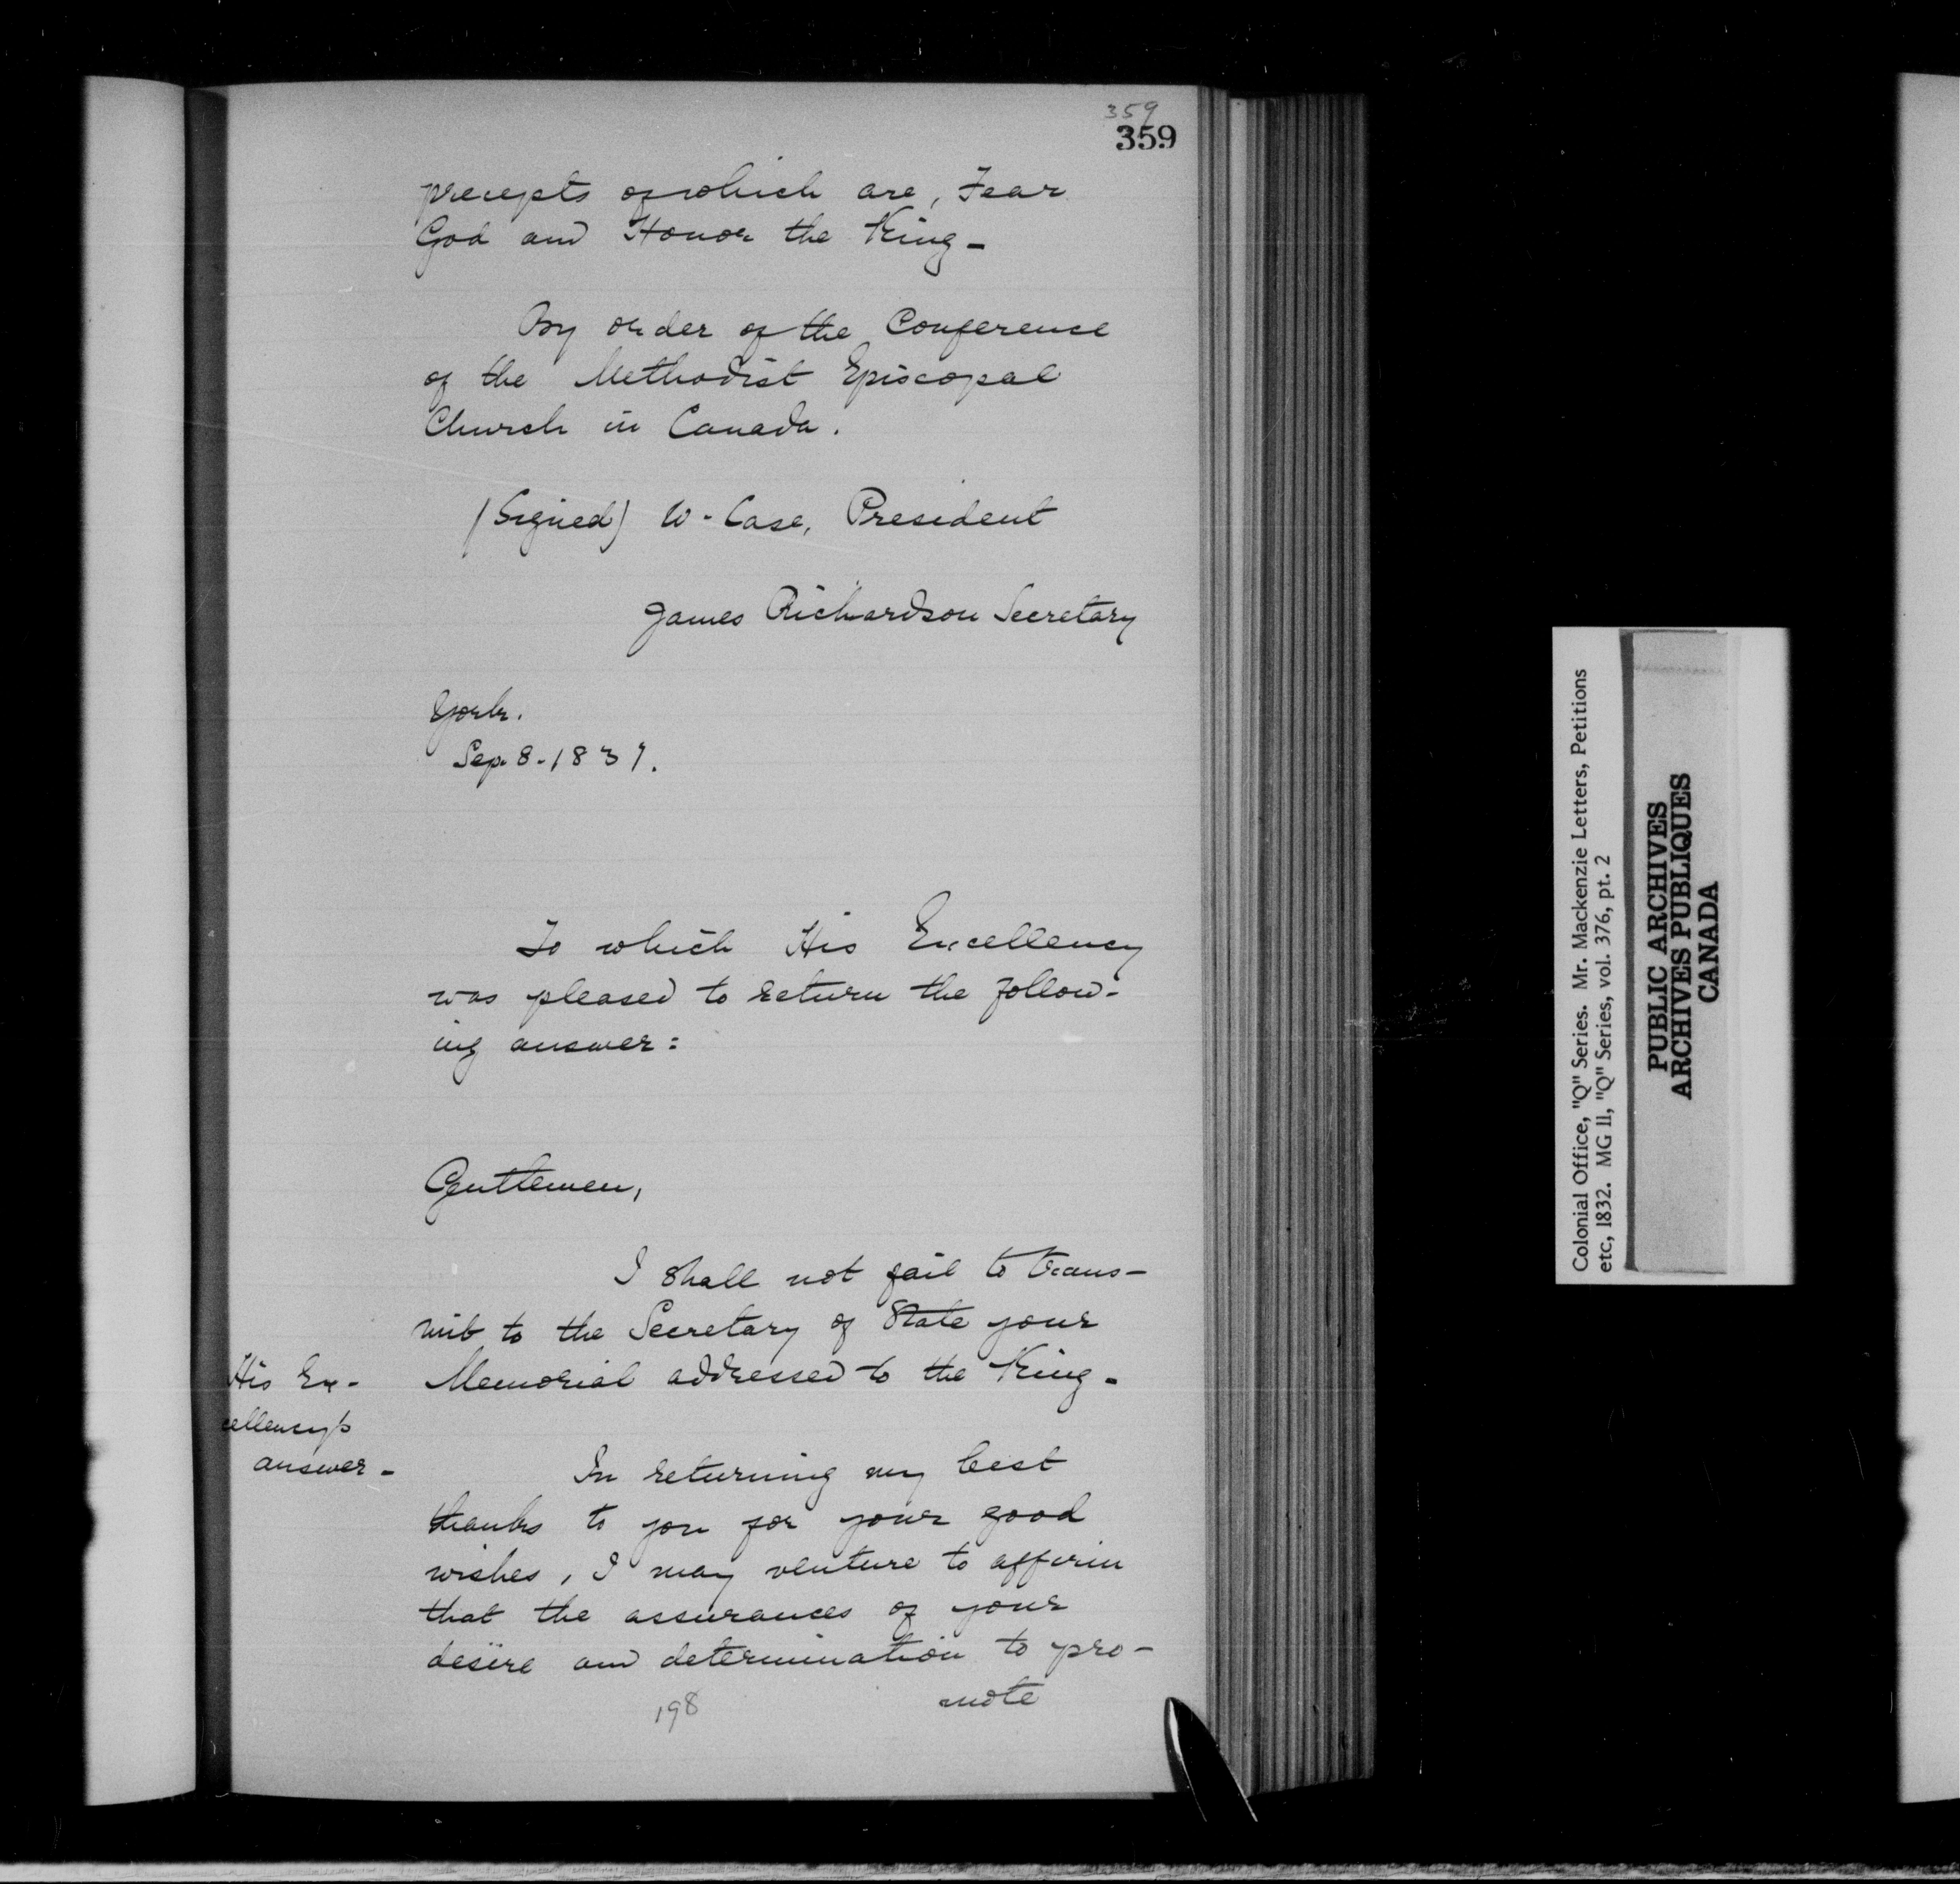 359
359
precepts of which are, Fear
God and Honor the King-
By order of the Conference
of the Methodist Episcopal
Church in Canada.
(Signed) W. Case, President
James Richardson Secretary
York.
Sep. 8-1831.
To which His Excellency
was pleased to return the follow-
ing answer:
Gentlemen,
I shall not fail to trans-
mit to the Secretary of State your
Memorial addressed to the King-
His Ex-
cellency's
answer-
In returning my best
thanks to you for your good
wishes, I may venture to affirm
that the assurances of your
desire and determination to pro-
mote
198
Colonial Office, "Q" Series. Mr. Mackenzie Letters, Petitions
etc, 1832. MG 11, "Q" Series, vol. 376, pt. 2
PUBLIC ARCHIVES
ARCHIVES PUBLIQUES
CANADA